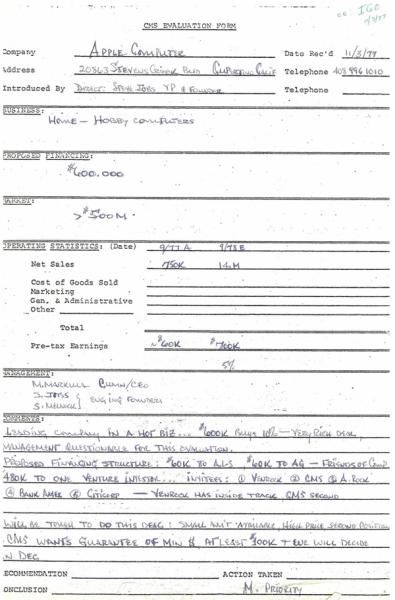 cc: IGO
CMS EVALUATION FORM
Company APPLE COMPUTER Date Rec'd 11/3/77
Address 20863 STEVENS CREEK BLVD CUPERTINO CALIF Telephone 408 996 1010
Introduced By DIRECT: STEVE JOBS VP & FOUNDER Telephone
BUSINESS:
HOME - HOBBY COMPUTERS
PROPOSED FINANCING:
$600,000
MARKET:
> $500M
OPERATING STATISTICS: (Date) 9/77 A 9/78 E
Net Sales 750K 14M
Cost of Goods Sold
Marketing
Gen. & Administrative
Other
Total
Pre-tax Earnings ~$60K $700K
5%
MANAGEMENT:
M. MARKULL CHMN/CEO
S. JOBS } ENG'ING FOUNDERS
S.
COMMENTS:
LEADING COMPANY IN A HOT BIZ... $600K BUYS 10% - VERY RICH DEAL,
MANAGEMENT QUESTIONABLE FOR THIS EVALUATION.
PROPOSED FINANCING STRUCTURE: $60K TO ALS, $60K TO AG - FRIENDS OF COMP.
480K TO ONE VENTURE INVESTOR... INVITEES: ① VENROCK ② CMS ③ A. ROCK
④ BANK AMER ⑤ CITICORP - VENROCK HAS INSIDE TRACK, CMS SECOND
WILL BE TOUGH TO DO THIS DEAL: SMALL AM'T AVAILABLE, HIGH PRICE, SECOND POSITION
CMS WANTS GUARANTEE OF MIN $, AT LEAST $300K + WE WILL DECIDE
IN DEC
RECOMMENDATION ACTION TAKEN
CONCLUSION M. PRIORITY